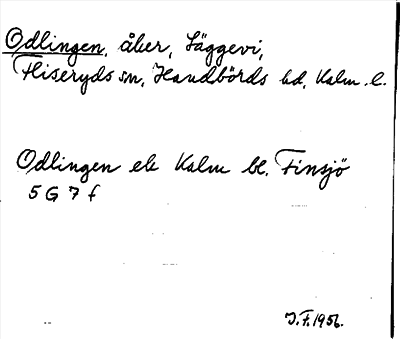 Odlingen, åker, Säggevi,
Fliseryds sn, Handbörds hd, Kalm. l.
Odlingen ek Kalm bl. Finsjö
5 G 7 f
J.F. 1956.